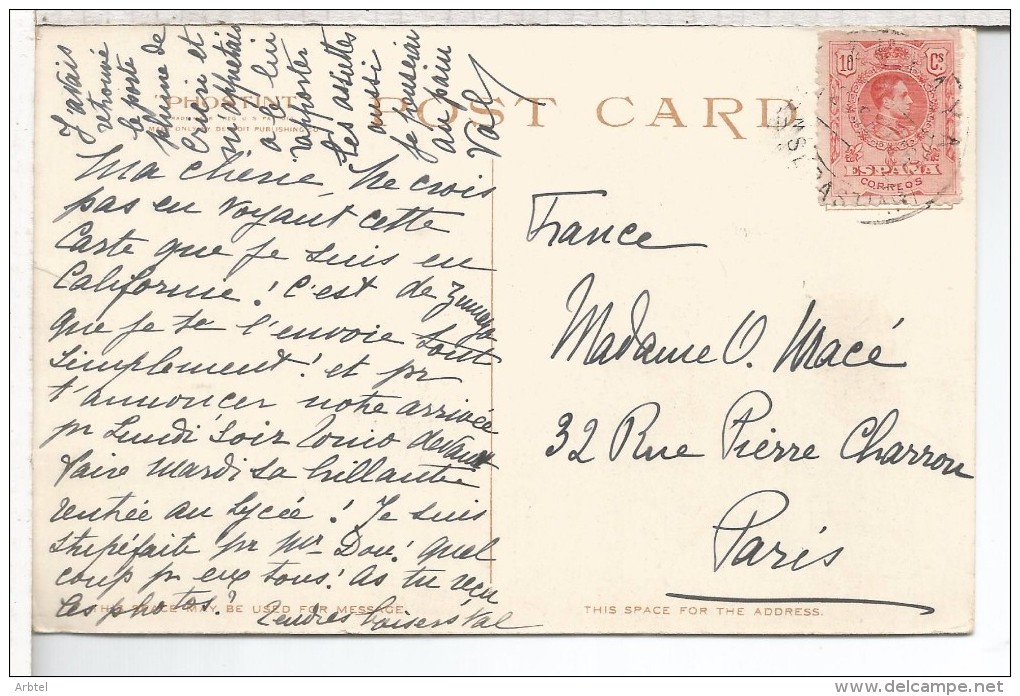 J'avais
retrouvé
le porte
plume de
Cuicui et
m'apprêtais
à le lui
rapporter
Les assiettes
aussi
je pousserai
au pain
Val
PHOSTINT
POST CARD
MADE ONLY BY DETROIT PUBLISHING CO.
10 Cs
ESPAÑA
CORREOS
Ma chérie, Ne crois
pas en voyant cette
carte que je suis en
Californie! C'est de Zumaya
que je te l'envoie tout
simplement! et pr
t'annoncer notre arrivée
pr Lundi soir Tonio devant
faire Mardi sa brillante
rentrée au Lycée! Je suis
stupéfaite pr Mr Dou! Quel
coup pr eux tous! As tu reçu
les photos?
Tendres baisers Val
THIS SPACE MAY BE USED FOR MESSAGE.
France
Madame O. Macé
32 Rue Pierre Charron
Paris
THIS SPACE FOR THE ADDRESS.
Arbtel
delcampe.net